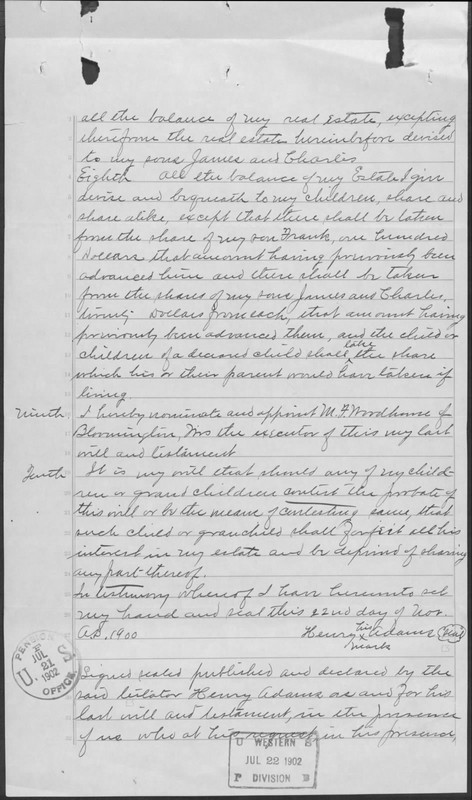 all the balance of my real Estate, excepting
therefrom the real estate hereinbefore devised
to my sons James and Charles
Eighth All the balance of my Estate I give
devise and bequeath to my children, share and
share alike, except that there shall be taken
from the share of my son Frank, one hundred
Dollars that amount having previously been
advanced him and there shall be taken
from the shares of my sons James and Charles,
twenty Dollars from each, that amount having
previously been advanced them, and the child or
children of a deceased child shall take the share
which his or their parent would have taken if
living.
Ninth I hereby nominate and appoint M. F. Woodhouse of
Bloomington, Wis the executor of this my last
will and testament
Tenth It is my will that should any of my child-
ren or grand children contest the probate of
this will or be the means of contesting same, that
such child or granchild shall forfeit all his
interest in my estate and be deprived of sharing
any part thereof.
In testimony whereof I have hereunto set
my hand and seal this 22nd day of Nov.
A.D. 1900
Henry his x mark Adams (Seal)
Signed sealed published and declared by the
said testator Henry Adams as and for his
last will and testament, in the presence
of us who at his request, in his presence,
U. S. PENSION OFFICE
JUL 21 1902
U WESTERN S
JUL 22 1902
P DIVISION B